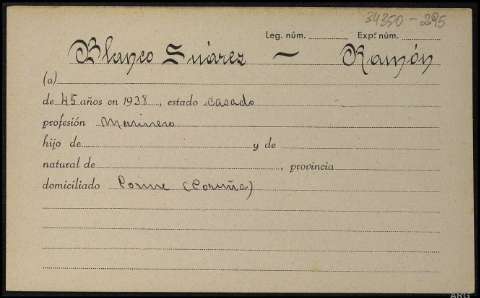 34350-295
Leg. núm. Exp. núm.
Blanco Suárez - Ramón
(a)
de 45 años en 1938, estado casado
profesión Marinero
hijo de y de
natural de, provincia
domiciliado (Coruña)